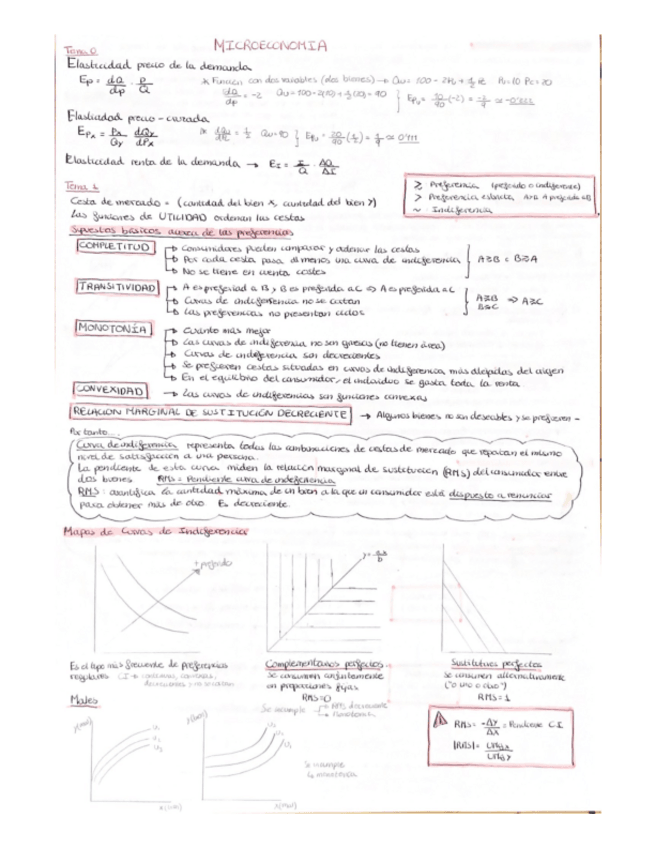 MICROECONOMIA
Tema 0
Elasticidad precio de la demanda
Ep = dQ/dp · P/Q
* Función con dos variables (dos bienes) → Qu = 100 - 2Pu + 1/2 Pc Pu=10 Pc=20
dQ/dp = -2 Qu = 100-2(10)+1/2(20) = 90 } Epu = 10/90 (-2) = -2/9 ≃ -0'222
Elasticidad precio-cruzada
EPx = Px/Qy · dQy/dPx
Qu=90 } = 20/90 (1/2) = 1/9 ≃ 0'111
Elasticidad renta de la demanda → EI = I/Q · ΔQ/ΔI
Tema 1
Cesta de mercado = (cantidad del bien x, cantidad del bien y)
Las funciones de UTILIDAD ordenan las cestas
≥ Preferencia (preferido o indiferente)
> Preferencia estricta A>B A preferida a B
~ Indiferencia
Supuestos básicos acerca de las preferencias
COMPLETITUD
→ Consumidores pueden comparar y ordenar las cestas
→ Por cada cesta pasa al menos una curva de indiferencia
→ No se tiene en cuenta costes
A≥B o B≥A
TRANSITIVIDAD
→ A es preferida a B y B es preferida a C ⇒ A es preferida a C
→ Curvas de indiferencia no se cortan
→ Las preferencias no presentan ciclos
A≥B
B≥C ⇒ A≥C
MONOTONÍA
→ Cuanto más mejor
→ Las curvas de indiferencia no son gruesas (no tienen área)
→ Curvas de indiferencia son decrecientes
→ Se prefieren cestas situadas en curvas de indiferencia más alejadas del origen
→ En el equilibrio del consumidor, el individuo se gasta toda la renta
CONVEXIDAD → Las curvas de indiferencias son funciones convexas
RELACION MARGINAL DE SUSTITUCIÓN DECRECIENTE → Algunos bienes no son deseables y se prefieren -
Por tanto...
Curva de indiferencia representa todas las combinaciones de cestas de mercado que reportan el mismo
nivel de satisfacción a una persona.
La pendiente de esta curva miden la relación marginal de sustitución (RMS) del consumidor entre
dos bienes RMS = Pendiente curva de indiferencia
RMS: cuantifica la cantidad máxima de un bien a la que un consumidor está dispuesto a renunciar
para obtener más de otro Es decreciente.
Mapas de Curvas de Indiferencia
+ preferido
Es el tipo más frecuente de preferencias
regulares CI →
Complementarios perfectos
Se consumen conjuntamente
en proporciones fijas
RMS=0
Se incumple → RMS decreciente
→ Monotonía
Sustitutivos perfectos
Se consumen alternativamente
("o uno o otro")
RMS=1
Males
U1
U2
U3
x(mal)
Se incumple
la monotonía
RMS = -Δy/Δx = Pendiente C.I.
|RMS| = UMgx/UMgy